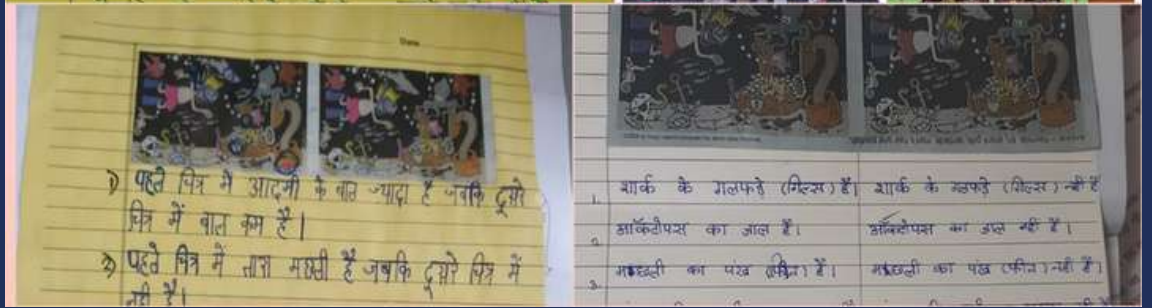 Date
1) पहले चित्र में आदमी के बाल ज्यादा है जबकि दूसरे
चित्र में बाल कम है।
2) पहले चित्र में तारा मछली है जबकि दूसरे चित्र में
नहीं है।
1. शार्क के गलफड़े (गिल्स) हैं। शार्क के गलफड़े (गिल्स) नहीं हैं
2. ऑक्टोपस का जाल है। ऑक्टोपस का जाल नहीं है।
3. मछली का पंख (फीन) है। मछली का पंख (फीन) नहीं है।